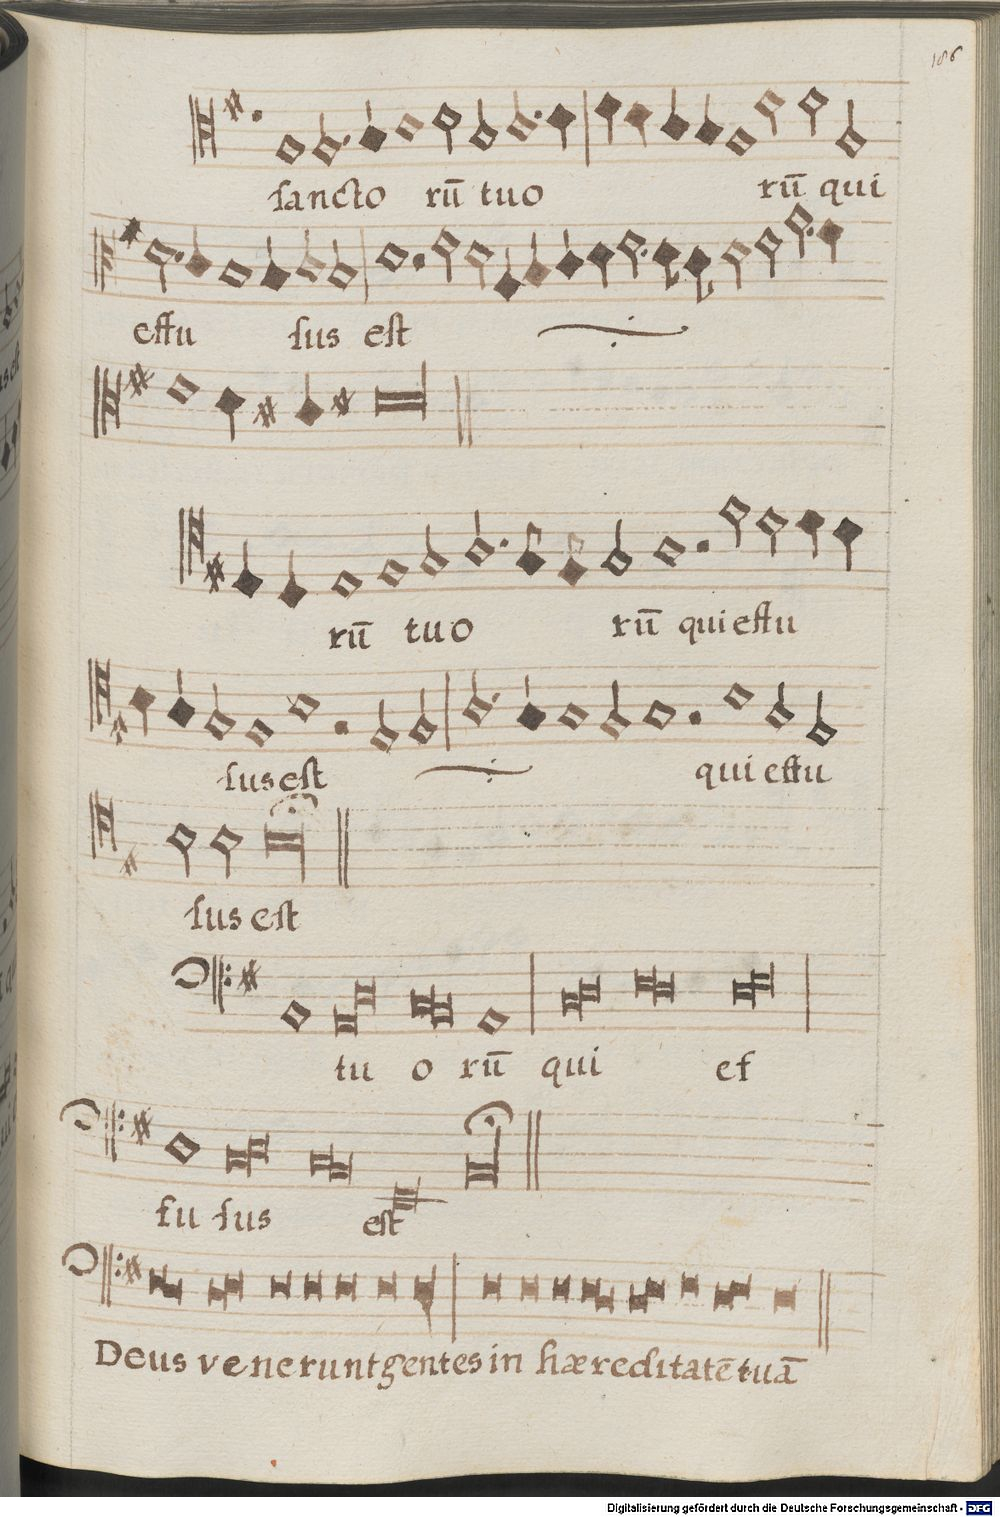 186
sancto rū tuo rū qui
effu sus est
rū tuo rū qui effu
sus est qui effu
sus est
tu o rū qui ef
fu sus est
Deus venerunt gentes in hæreditatē tuā
Digitalisierung gefördert durch die Deutsche Forschungsgemeinschaft - DFG